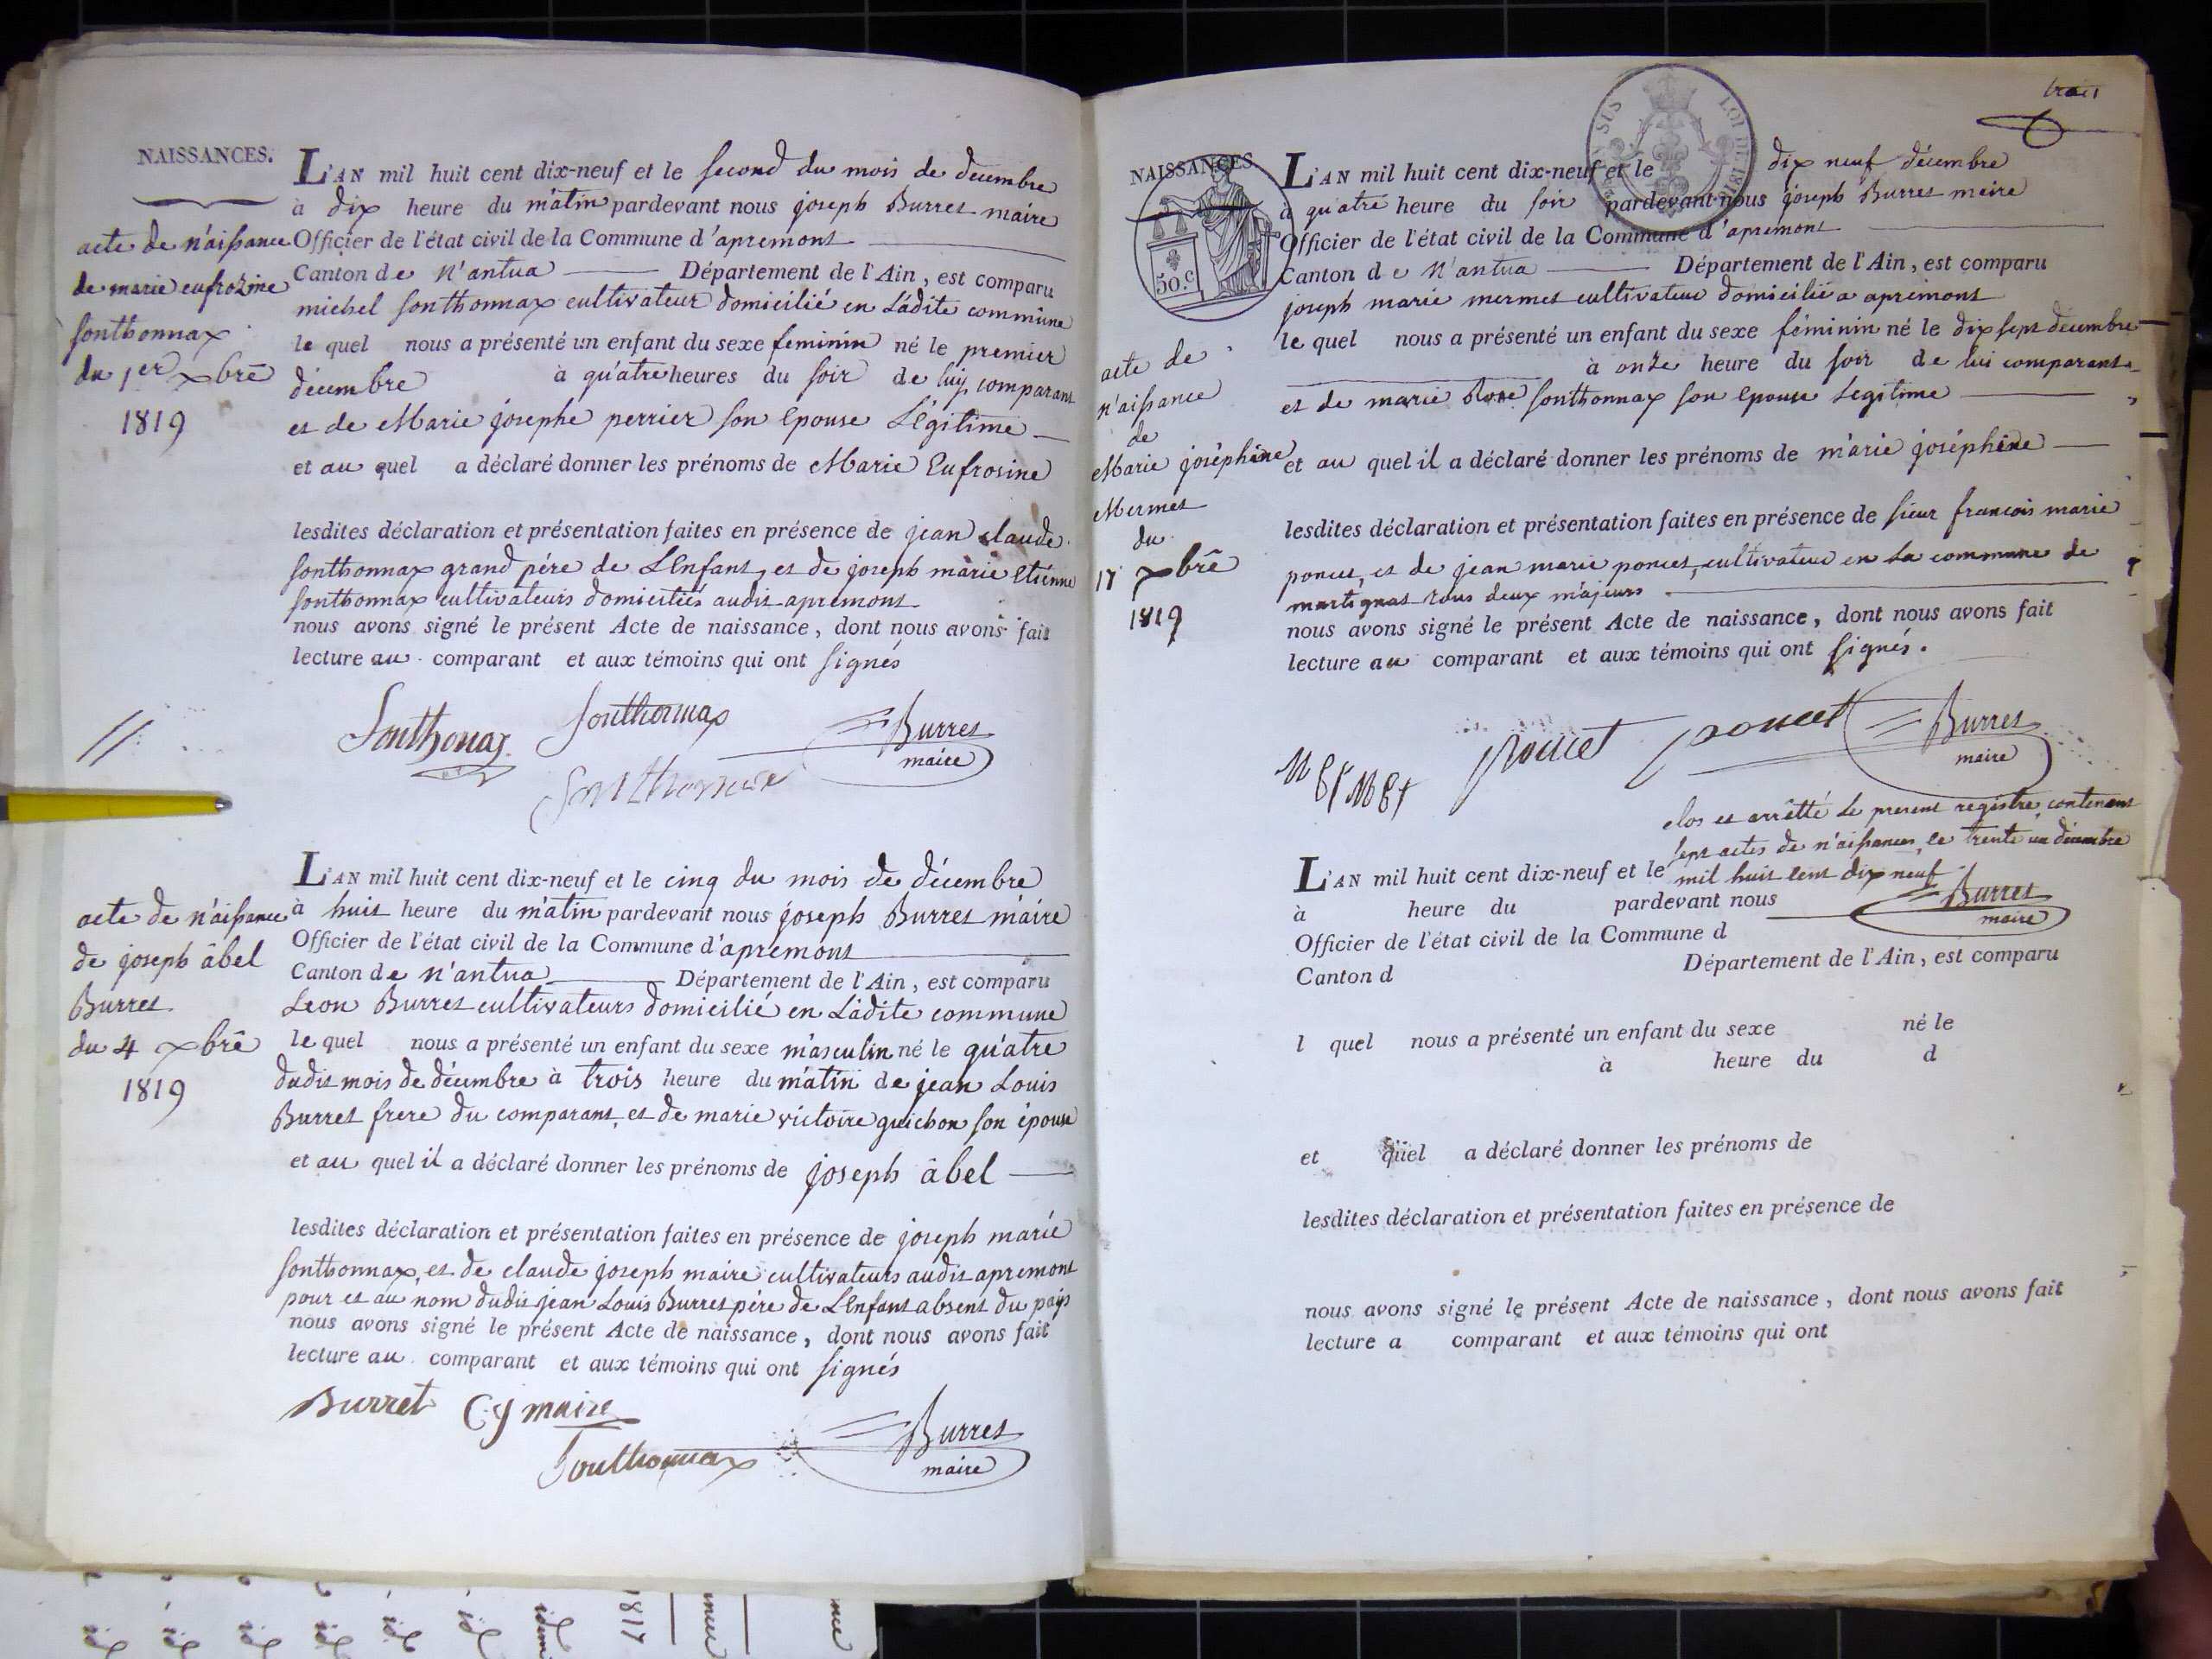 NAISSANCES.
acte de n'aissance
de marie eufrozine
sonthonnax
du 1er xbre
1819
L'AN mil huit cent dix-neuf et le second du mois de decembre
à dix heure du matin pardevant nous joseph Burret maire
Officier de l'état civil de la Commune d'apremont
Canton de n'antua Département de l'Ain, est comparu
michel sonthonnax cultivateur domicilié en Ladite commune
le quel nous a présenté un enfant du sexe feminin né le premier
décembre à qu'atre heures du soir de luy comparant
et de Marie josephe perrier son Epouse Légitime
et au quel a déclaré donner les prénoms de Marie Eufrosine
lesdites déclaration et présentation faites en présence de jean claude
sonthonnax grand pére de L'Enfant, et de joseph marie Etienne
sonthonnax cultivateurs domiciliés audit apremont
nous avons signé le présent Acte de naissance, dont nous avons fait
lecture au comparant et aux témoins qui ont signés
Sonthonax sonthonnax Burret
maire
Sonthonnax
acte de n'aissance
de joseph âbel
Burret
du 4 xbre
1819
L'AN mil huit cent dix-neuf et le cinq du mois de décembre
à huit heure du matin pardevant nous joseph Burret maire
Officier de l'état civil de la Commune d'apremont
Canton de n'antua Département de l'Ain, est comparu
Leon Burret cultivateurs domicilié en Ladite commune
le quel nous a présenté un enfant du sexe masculin né le qu'atre
dudit mois de décembre à trois heure du matin de jean Louis
Burret frere du comparant, et de marie victoire guichon son épouse
et au quel il a déclaré donner les prénoms de joseph âbel
lesdites déclaration et présentation faites en présence de joseph marie
sonthonnax, et de claude joseph maire cultivateurs audit apremont
pour et au nom dudit jean Louis Burret pére de L'Enfant absent du pays
nous avons signé le présent Acte de naissance, dont nous avons fait
lecture au comparant et aux témoins qui ont signés
Burret C j maire
Sonthonnax Burret
maire
trois
NAISSANCES
50.C
LOI DE 1816
acte de
n'aissance
de
Marie joséphine
Mermet
du
17 xbre
1819
L'AN mil huit cent dix-neuf et le dix neuf décembre
à qu'atre heure du soir pardevant nous joseph Burret maire
Officier de l'état civil de la Commune d'apremont
Canton de N'antua Département de l'Ain, est comparu
joseph marie mermet cultivateur domicilié a apremont
le quel nous a présenté un enfant du sexe féminin né le dix sept decembre
à onze heure du soir de lui comparant
et de marie Rose sonthonnax son Epouse Legitime
et au quel il a déclaré donner les prénoms de marie joséphine
lesdites déclaration et présentation faites en présence de sieur francois marie
poncet, et de jean marie poncet, cultivateur en La commune de
martignat tous deux majeurs
nous avons signé le présent Acte de naissance, dont nous avons fait
lecture au comparant et aux témoins qui ont signés.
MERMET poncet poncet Burret
maire
clos et arrêtté Le present registre, contenant
sept actes de n'aissances, ce trente un décembre
mil huit cent dix neuf
Burret
maire
L'AN mil huit cent dix-neuf et le
à heure du pardevant nous
Officier de l'état civil de la Commune d
Canton d Département de l'Ain, est comparu
l quel nous a présenté un enfant du sexe né le
à heure du d
et quel a déclaré donner les prénoms de
lesdites déclaration et présentation faites en présence de
nous avons signé le présent Acte de naissance, dont nous avons fait
lecture a comparant et aux témoins qui ont
1817
idem